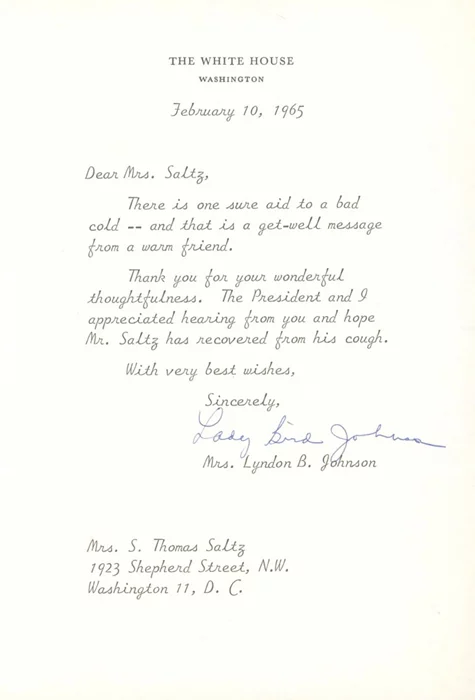 THE WHITE HOUSE
WASHINGTON
February 10, 1965
Dear Mrs. Saltz,
There is one sure aid to a bad
cold -- and that is a get-well message
from a warm friend.
Thank you for your wonderful
thoughtfulness. The President and I
appreciated hearing from you and hope
Mr. Saltz has recovered from his cough.
With very best wishes,
Sincerely,
Lady Bird Johnson
Mrs. Lyndon B. Johnson
Mrs. S. Thomas Saltz
1923 Shepherd Street, N.W.
Washington 11, D. C.